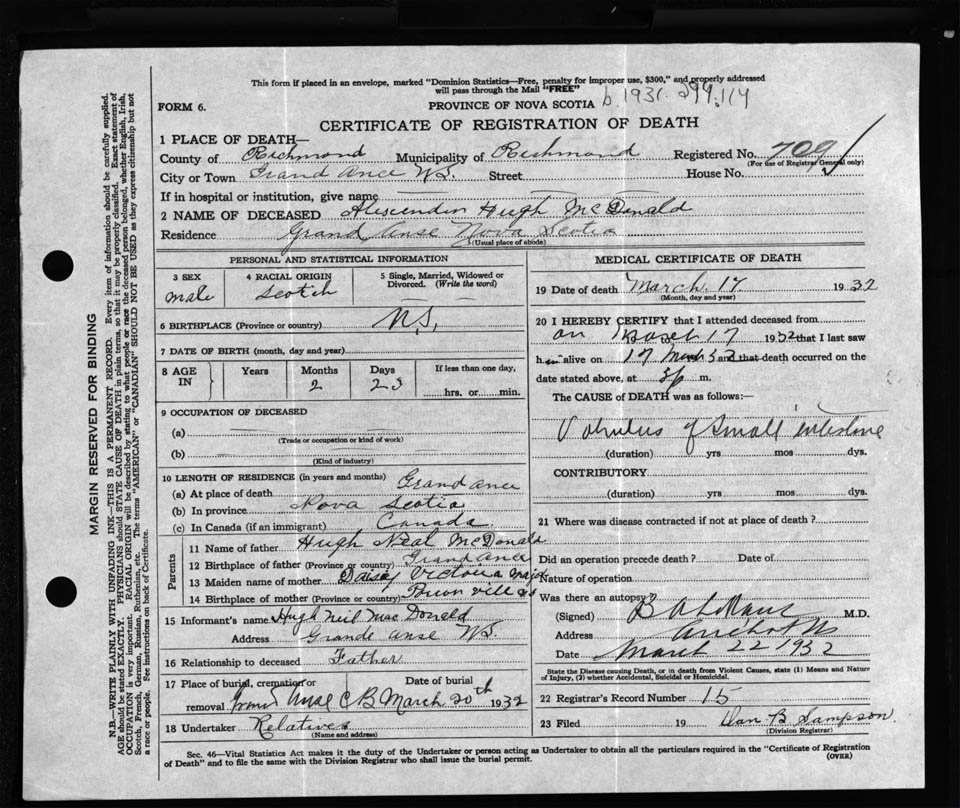 This form if placed in an envelope, marked "Dominion Statistics—Free, penalty for improper use, $300," and properly addressed
will pass through the Mail "FREE"
b. 1931. 299. 114
FORM 6.
PROVINCE OF NOVA SCOTIA
CERTIFICATE OF REGISTRATION OF DEATH
1 PLACE OF DEATH—
County of Richmond Municipality of Richmond Registered No. 709
(For use of Registrar General only)
City or Town Grand Ance N.S. Street House No.
If in hospital or institution, give name
2 NAME OF DECEASED Hugh McDonald
Residence Grand Anse Nova Scotia
(Usual place of abode)
PERSONAL AND STATISTICAL INFORMATION
3 SEX male
4 RACIAL ORIGIN Scotch
5 Single, Married, Widowed or Divorced. (Write the word)
6 BIRTHPLACE (Province or country) N.S.
7 DATE OF BIRTH (month, day and year)
8 AGE IN Years Months 2 Days 23 If less than one day, hrs. or min.
9 OCCUPATION OF DECEASED
(a)
(Trade or occupation or kind of work)
(b)
(Kind of industry)
10 LENGTH OF RESIDENCE (in years and months)
(a) At place of death Grand ance
(b) In province Nova Scotia
(c) In Canada (if an immigrant) Canada
Parents
11 Name of father Hugh Neal McDonald
12 Birthplace of father (Province or country) Grand Ance
13 Maiden name of mother Daisey Victoria
14 Birthplace of mother (Province or country)
15 Informant's name Hugh Neil Mac Donald
Address Grande anse N.S.
16 Relationship to deceased Father
17 Place of burial, cremation or removal Grand Anse C B Date of burial March 20th 1932
18 Undertaker Relatives
(Name and address)
MEDICAL CERTIFICATE OF DEATH
19 Date of death March 17 1932
(Month, day and year)
20 I HEREBY CERTIFY that I attended deceased from
on 17 1932 that I last saw
h alive on 17 March 32 and that death occurred on the
date stated above, at m.
The CAUSE of DEATH was as follows:—
Volvulus of Small intestine
(duration) yrs mos dys.
CONTRIBUTORY
(duration) yrs mos dys.
21 Where was disease contracted if not at place of death?
Did an operation precede death? Date of
Nature of operation
Was there an autopsy?
(Signed) M.D.
Address
Date March 22 1932
State the Disease causing Death, or in death from Violent Causes, state (1) Means and Nature
of Injury, (2) whether Accidental, Suicidal or Homicidal.
22 Registrar's Record Number 15
23 Filed 19 Dan B Sampson
(Division Registrar)
Sec. 46—Vital Statistics Act makes it the duty of the Undertaker or person acting as Undertaker to obtain all the particulars required in the "Certificate of Registration
of Death" and to file the same with the Division Registrar who shall issue the burial permit.
(OVER)
MARGIN RESERVED FOR BINDING
N.B.—WRITE PLAINLY WITH UNFADING INK—THIS IS A PERMANENT RECORD. Every item of information should be carefully supplied.
AGE should be stated EXACTLY. PHYSICIANS should STATE CAUSE OF DEATH in plain terms, so that it may be properly classified. Exact statement of
OCCUPATION is very important. RACIAL ORIGIN will be described by stating to what people or race the deceased person belonged, whether English, Irish,
Scotch, French, German, Russian, Ruthenian, etc. The terms "AMERICAN" or "CANADIAN" SHOULD NOT BE USED as they express citizenship but not
a race or people. See instructions on back of Certificate.